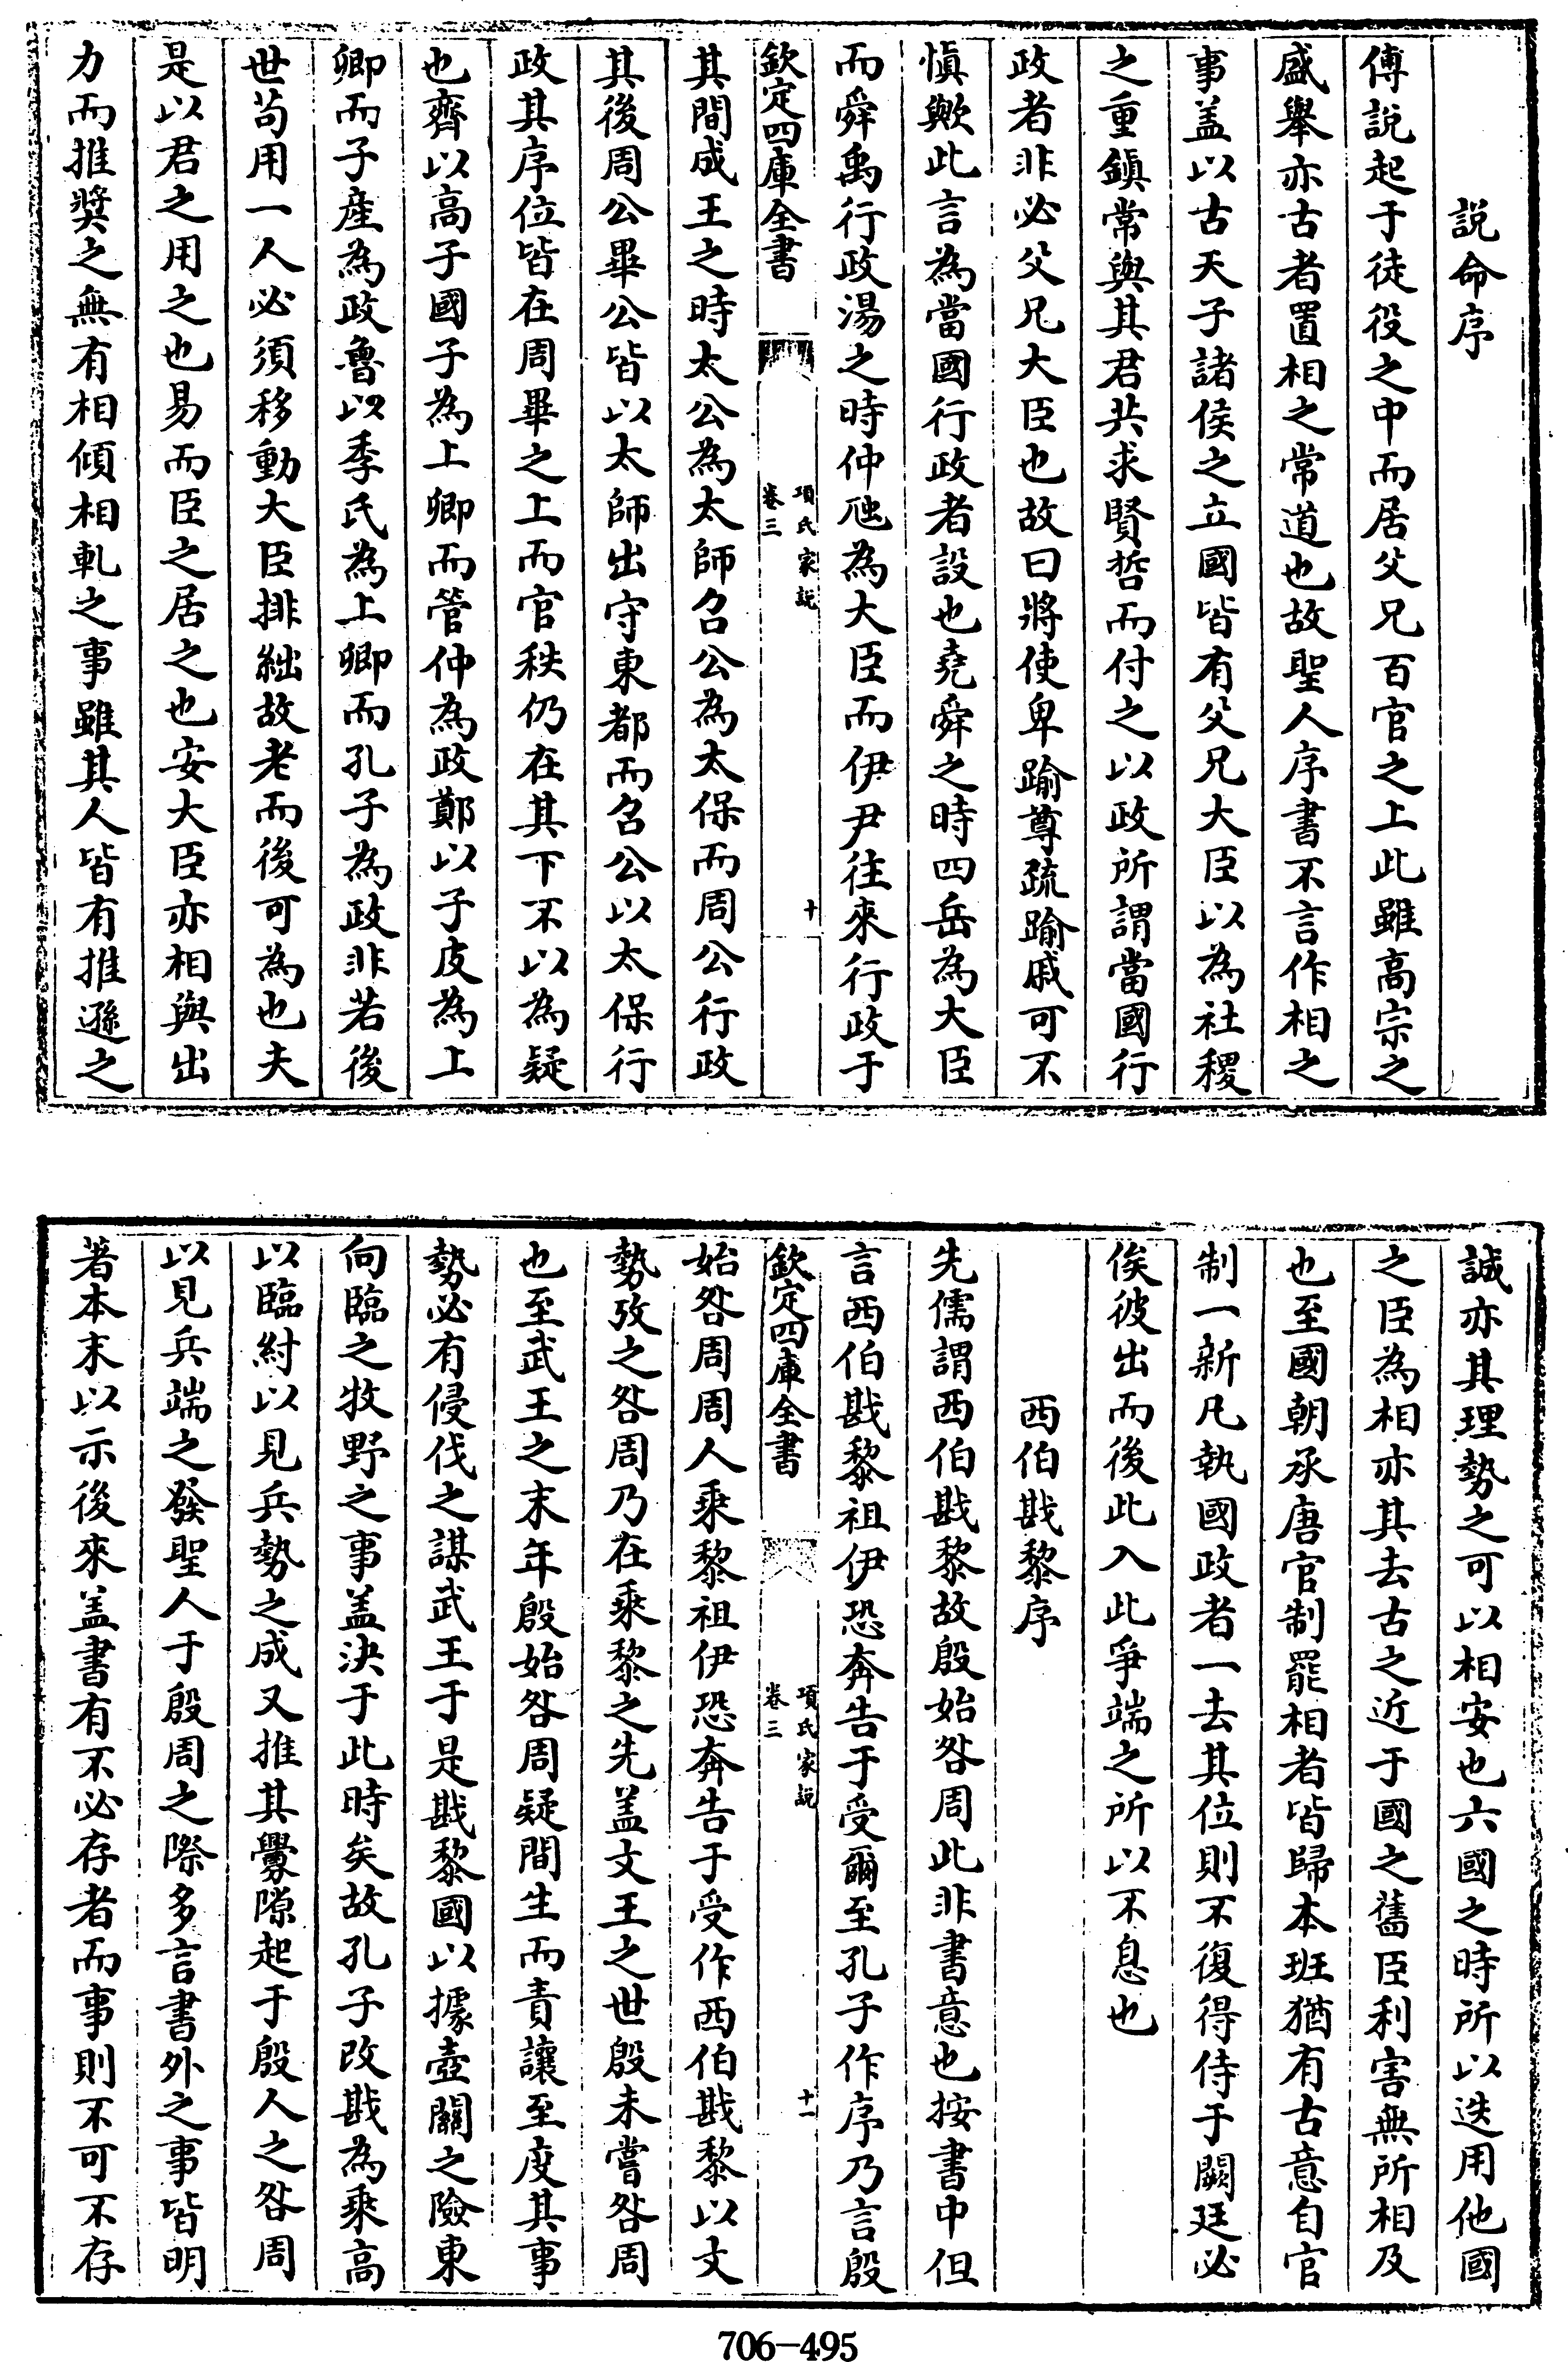 說命序
傅說起于徒役之中而居父兄百官之上此雖高宗之
盛舉亦古者置相之常道也故聖人序書不言作相之
事盖以古天子諸侯之立國皆有父兄大臣以為社稷
之重鎮常與其君共求賢哲而付之以政所謂當國行
政者非必父兄大臣也故曰將使卑踰尊疏踰戚可不
慎歟此言為當國行政者設也堯舜之時四岳為大臣
而舜禹行政湯之時仲虺為大臣而伊尹往來行政于
欽定四庫全書
項氏家説
卷三
十
其間成王之時太公為太師召公為太保而周公行政
其後周公畢公皆以太師出守東都而召公以太保行
政其序位皆在周畢之上而官秩仍在其下不以為疑
也齊以高子國子為上卿而管仲為政鄭以子皮為上
卿而子產為政魯以季氏為上卿而孔子為政非若後
世苟用一人必須移動大臣排絀故老而後可為也夫
是以君之用之也易而臣之居之也安大臣亦相與出
力而推奬之無有相傾相軋之事雖其人皆有推遜之
誠亦其理勢之可以相安也六國之時所以迭用他國
之臣為相亦其去古之近于國之舊臣利害無所相及
也至國朝承唐官制罷相者皆歸本班猶有古意自官
制一新凡執國政者一去其位則不復得侍于闕廷必
俟彼出而後此入此爭端之所以不息也
西伯戡黎序
先儒謂西伯戡黎故殷始咎周此非書意也按書中但
言西伯戡黎祖伊恐奔告于受爾至孔子作序乃言殷
欽定四庫全書
項氏家説
卷三
十一
始咎周周人乘黎祖伊恐奔告于受作西伯戡黎以文
勢攷之咎周乃在乘黎之先盖文王之世殷未嘗咎周
也至武王之末年殷始咎周疑間生而責讓至度其事
勢必有侵伐之謀武王于是戡黎國以據壺關之險東
向臨之牧野之事盖決于此時矣故孔子改戡為乘高
以臨紂以見兵勢之成又推其釁隙起于殷人之咎周
以見兵端之發聖人于殷周之際多言書外之事皆明
著本末以示後來盖書有不必存者而事則不可不存
706-495